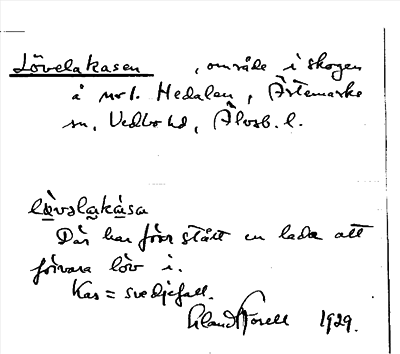 Lövelakasen, område i skogen
å nr 1. Hedalen, Ärtemarks
sn, Vedbo hd, Älvsb. l.
lövslakåsa
Där har förr stått en lada att
förvara löv i.
Kas = svedjefall.
1929.